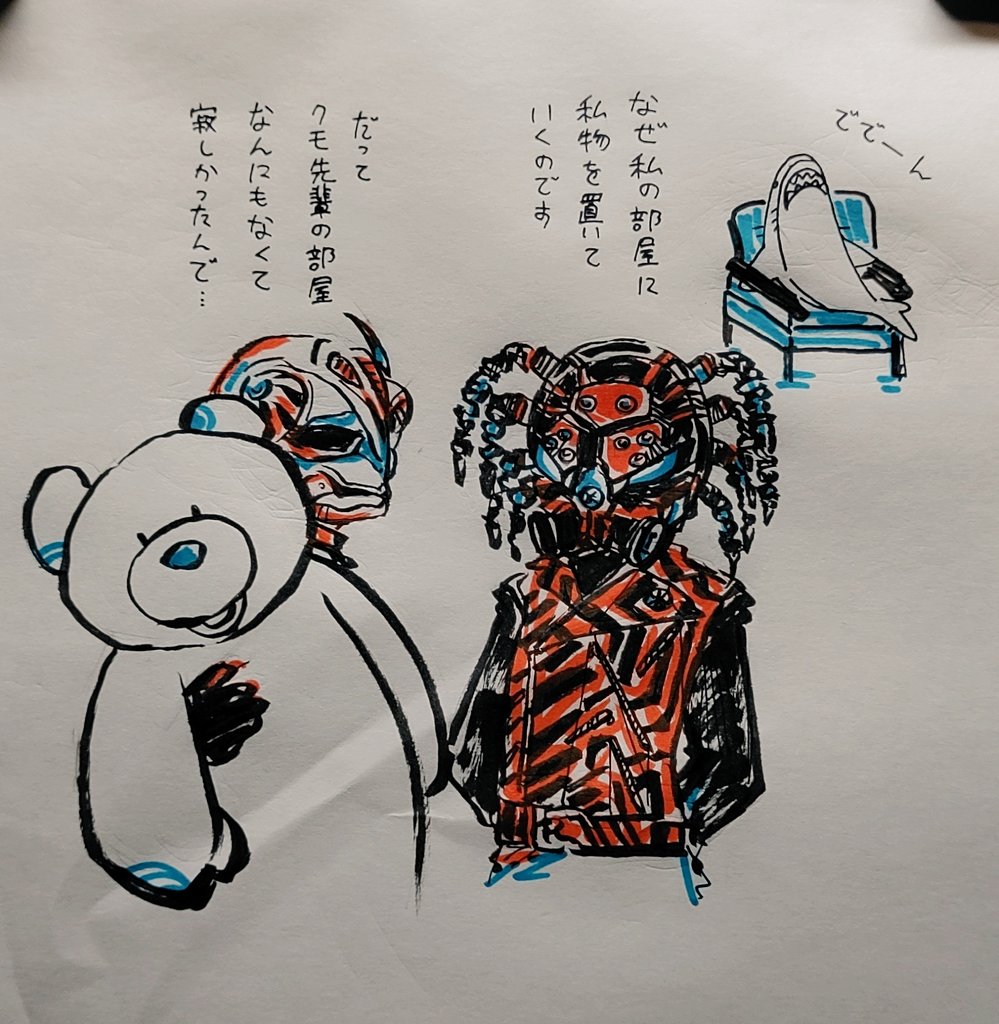 でで一ん
なぜ私の部屋に
私物を置いて
いくのです
だって
クモ先輩の部屋
なんにもなくて
寂しかったんで…